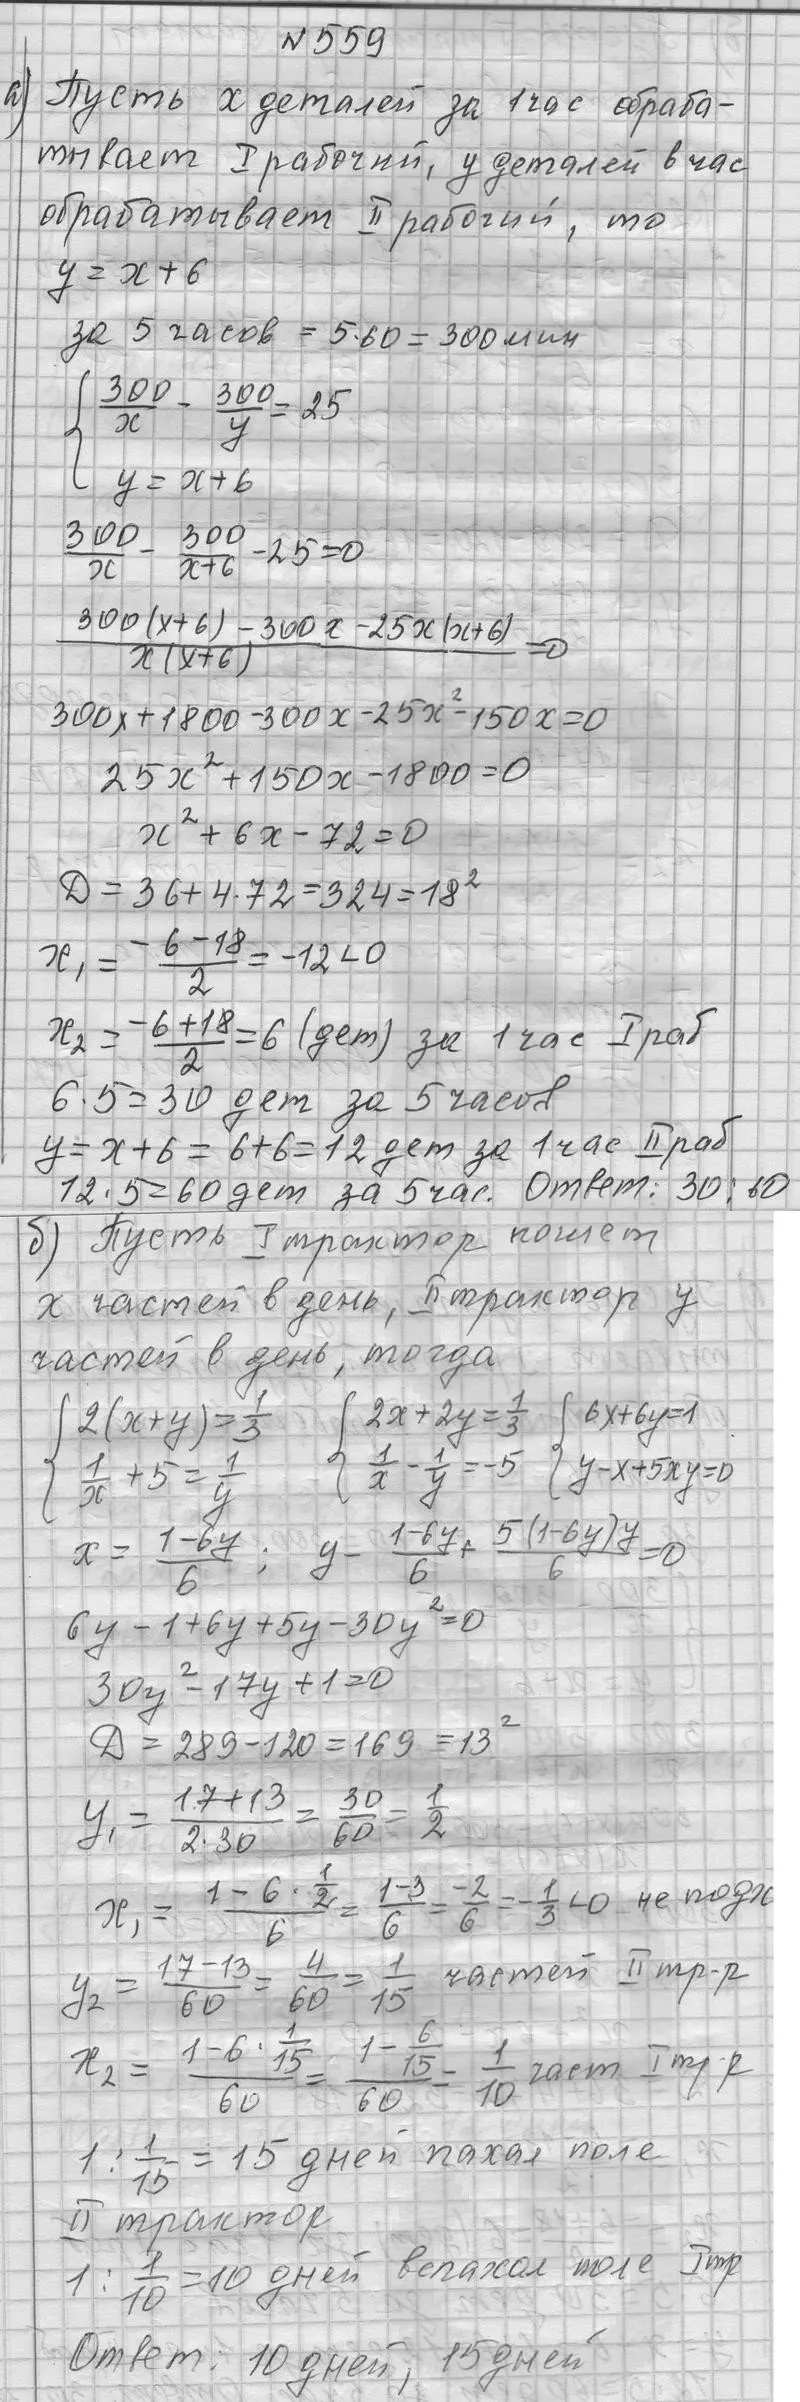 №559
а) Пусть x деталей за 1 час обраба-
тывает I рабочий, y деталей в час
обрабатывает II рабочий, то
y = x + 6
за 5 часов = 5·60 = 300 мин
{ 300/x - 300/y = 25
y = x + 6
300/x - 300/(x+6) - 25 = 0
(300(x+6) - 300x - 25x(x+6))/(x(x+6)) = 0
300x + 1800 - 300x - 25x² - 150x = 0
25x² + 150x - 1800 = 0
x² + 6x - 72 = 0
D = 36 + 4·72 = 324 = 18²
x₁ = (-6-18)/2 = -12 < 0
x₂ = (-6+18)/2 = 6 (дет) за 1 час I раб
6·5 = 30 дет за 5 часов
y = x + 6 = 6+6 = 12 дет за 1 час II раб
12·5 = 60 дет за 5 час. Ответ: 30; 60
б) Пусть I трактор пошет
x частей в день, II трактор y
частей в день, тогда
{ 2(x+y) = 1/3 { 2x+2y = 1/3 { 6x+6y=1
1/x + 5 = 1/y 1/x - 1/y = -5 y-x+5xy=0
x = (1-6y)/6 ; y - (1-6y)/6 + (5(1-6y)y)/6 = 0
6y - 1 + 6y + 5y - 30y² = 0
30y² - 17y + 1 = 0
D = 289 - 120 = 169 = 13²
y₁ = (17+13)/(2·30) = 30/60 = 1/2
x₁ = (1-6·1/2)/6 = (1-3)/6 = -2/6 = -1/3 < 0 не подх
y₂ = (17-13)/60 = 4/60 = 1/15 частей II тр-р
x₂ = (1-6·1/15)/60 = (1-6/15)/60 = 1/10 част I тр-р
1 : 1/15 = 15 дней пахал поле
II трактор
1 : 1/10 = 10 дней вспахал поле I тр
Ответ: 10 дней, 15 дней